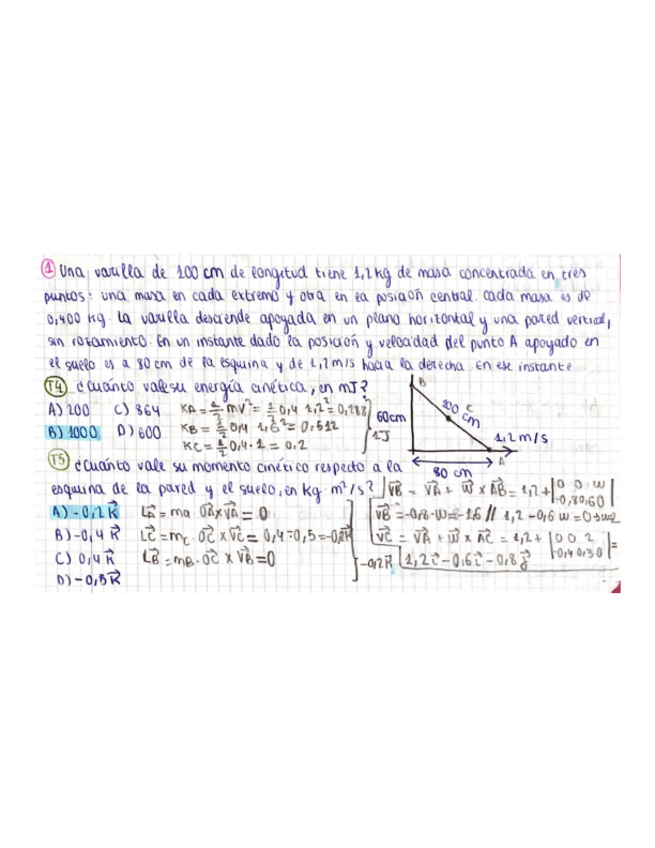 ① Una varilla de 100 cm de longitud tiene 1,2 kg de masa concentrada en tres
puntos: una masa en cada extremo y otra en la posición central. Cada masa es de
0,400 kg. La varilla desciende apoyada en un plano horizontal y una pared vertical,
sin rozamiento. En un instante dado la posición y velocidad del punto A apoyado en
el suelo es a 80 cm de la esquina y de 1,2 m/s hacia la derecha. En ese instante
T4 ¿Cuánto vale su energía cinética, en mJ?
A) 200 C) 864
B) 1000 D) 600
KA = 1/2 mv² = 1/2 0,4 1,2² = 0,288
KB = 1/2 0,4 1,6² = 0,512
KC = 1/2 0,4 · 1 = 0,2
1J
B
60cm
100 cm
C
1,2 m/s
A
80 cm
T5 ¿Cuánto vale su momento cinético respecto a la
esquina de la pared y el suelo, en kg · m²/s?
A) -0,2 K⃗
B) -0,4 K⃗
C) 0,4 K⃗
D) -0,5 K⃗
L⃗A = ma O⃗A × V⃗A = 0
L⃗C = mc · O⃗C × V⃗C = 0,4 · 0,5 = -0,2K⃗
L⃗B = mB · O⃗C × V⃗B = 0
-0,2K⃗
V⃗B = V⃗A + W⃗ × A⃗B = 1,2 + |0 0 w|
|-0,8 0,6 0|
V⃗B = -0,8 · W = -1,6 // 1,2 - 0,6 w = 0 → w=2
V⃗C = V⃗A + W⃗ × A⃗C = 1,2 + |0 0 2| =
|-0,4 0,3 0|
1,2 i⃗ - 0,6 i⃗ - 0,8 j⃗